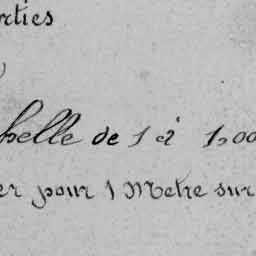 rties
helle de 1 à 1,00
er pour 1 Metre sur